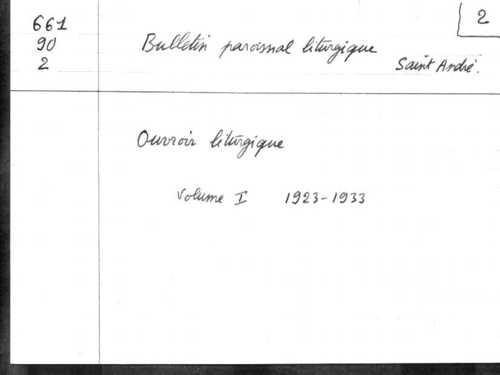 2
661
90
2
Bulletin paroissial liturgique
Saint André.
Ouvroir liturgique
Volume I 1923-1933